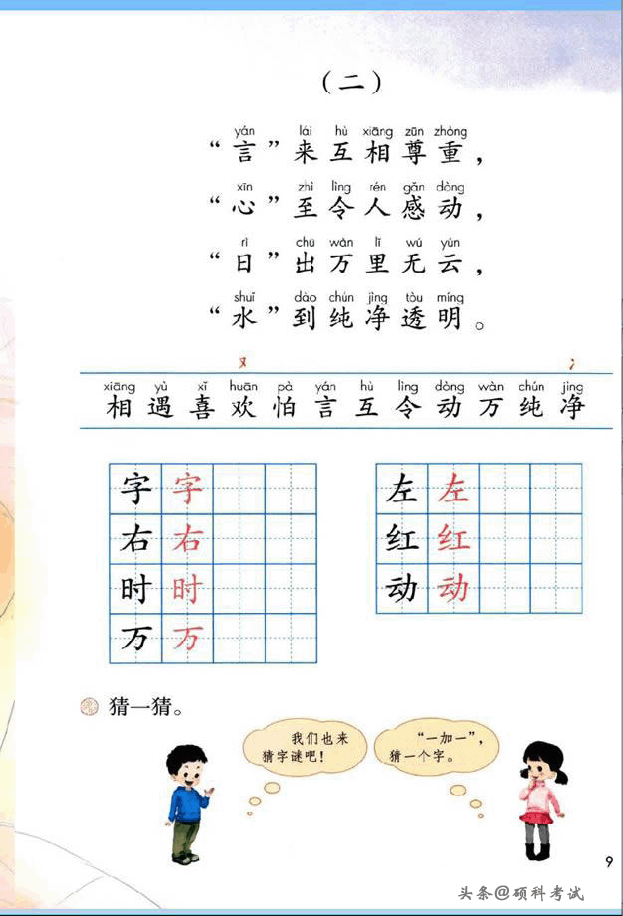 （二）
yán lái hù xiāng zūn zhòng
“言”来互相尊重，
xīn zhì lìng rén gǎn dòng
“心”至令人感动，
rì chū wàn lǐ wú yún
“日”出万里无云，
shuǐ dào chún jìng tòu míng
“水”到纯净透明。
又 冫
xiāng yù xǐ huān pà yán hù lìng dòng wàn chún jìng
相遇喜欢怕言互令动万纯净
字 字 左 左
右 右 红 红
时 时 动 动
万 万
猜一猜。
我们也来
猜字谜吧！
“一加一”，
猜一个字。
9
头条@硕科考试